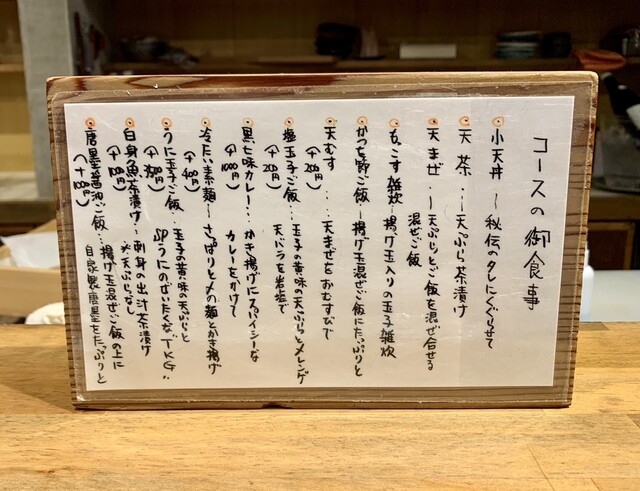 コースの御食事
小天丼 〜 秘伝のタレにくぐらせて
天茶 … 天ぷら茶漬け
天まぜ … 天ぷらとご飯を混ぜ合せる
混ぜご飯
もこす雑炊…揚げ玉入りの玉子雑炊
かつを節ご飯…揚げ玉混ぜご飯にたっぷりと
天むす … 天まぜをおむすびで
(+200円)
塩玉子ご飯…玉子の黄味の天ぷらとメレンゲ
(+200円) 天バラを岩塩で
黒七味カレー…かき揚げにスパイシーな
(+1000円) カレーをかけて
冷たい素麺〜さっぱりと〆の麺とかき揚げ
(+400円)
うに玉子ご飯…玉子の黄味の天ぷらと
生うにのぜいたくな"TKG"
白身魚茶漬け…刺身の出汁茶漬け
※天ぷらなし
唐墨醤油ご飯…揚げ玉混ぜご飯の上に
自家製唐墨をたっぷりと